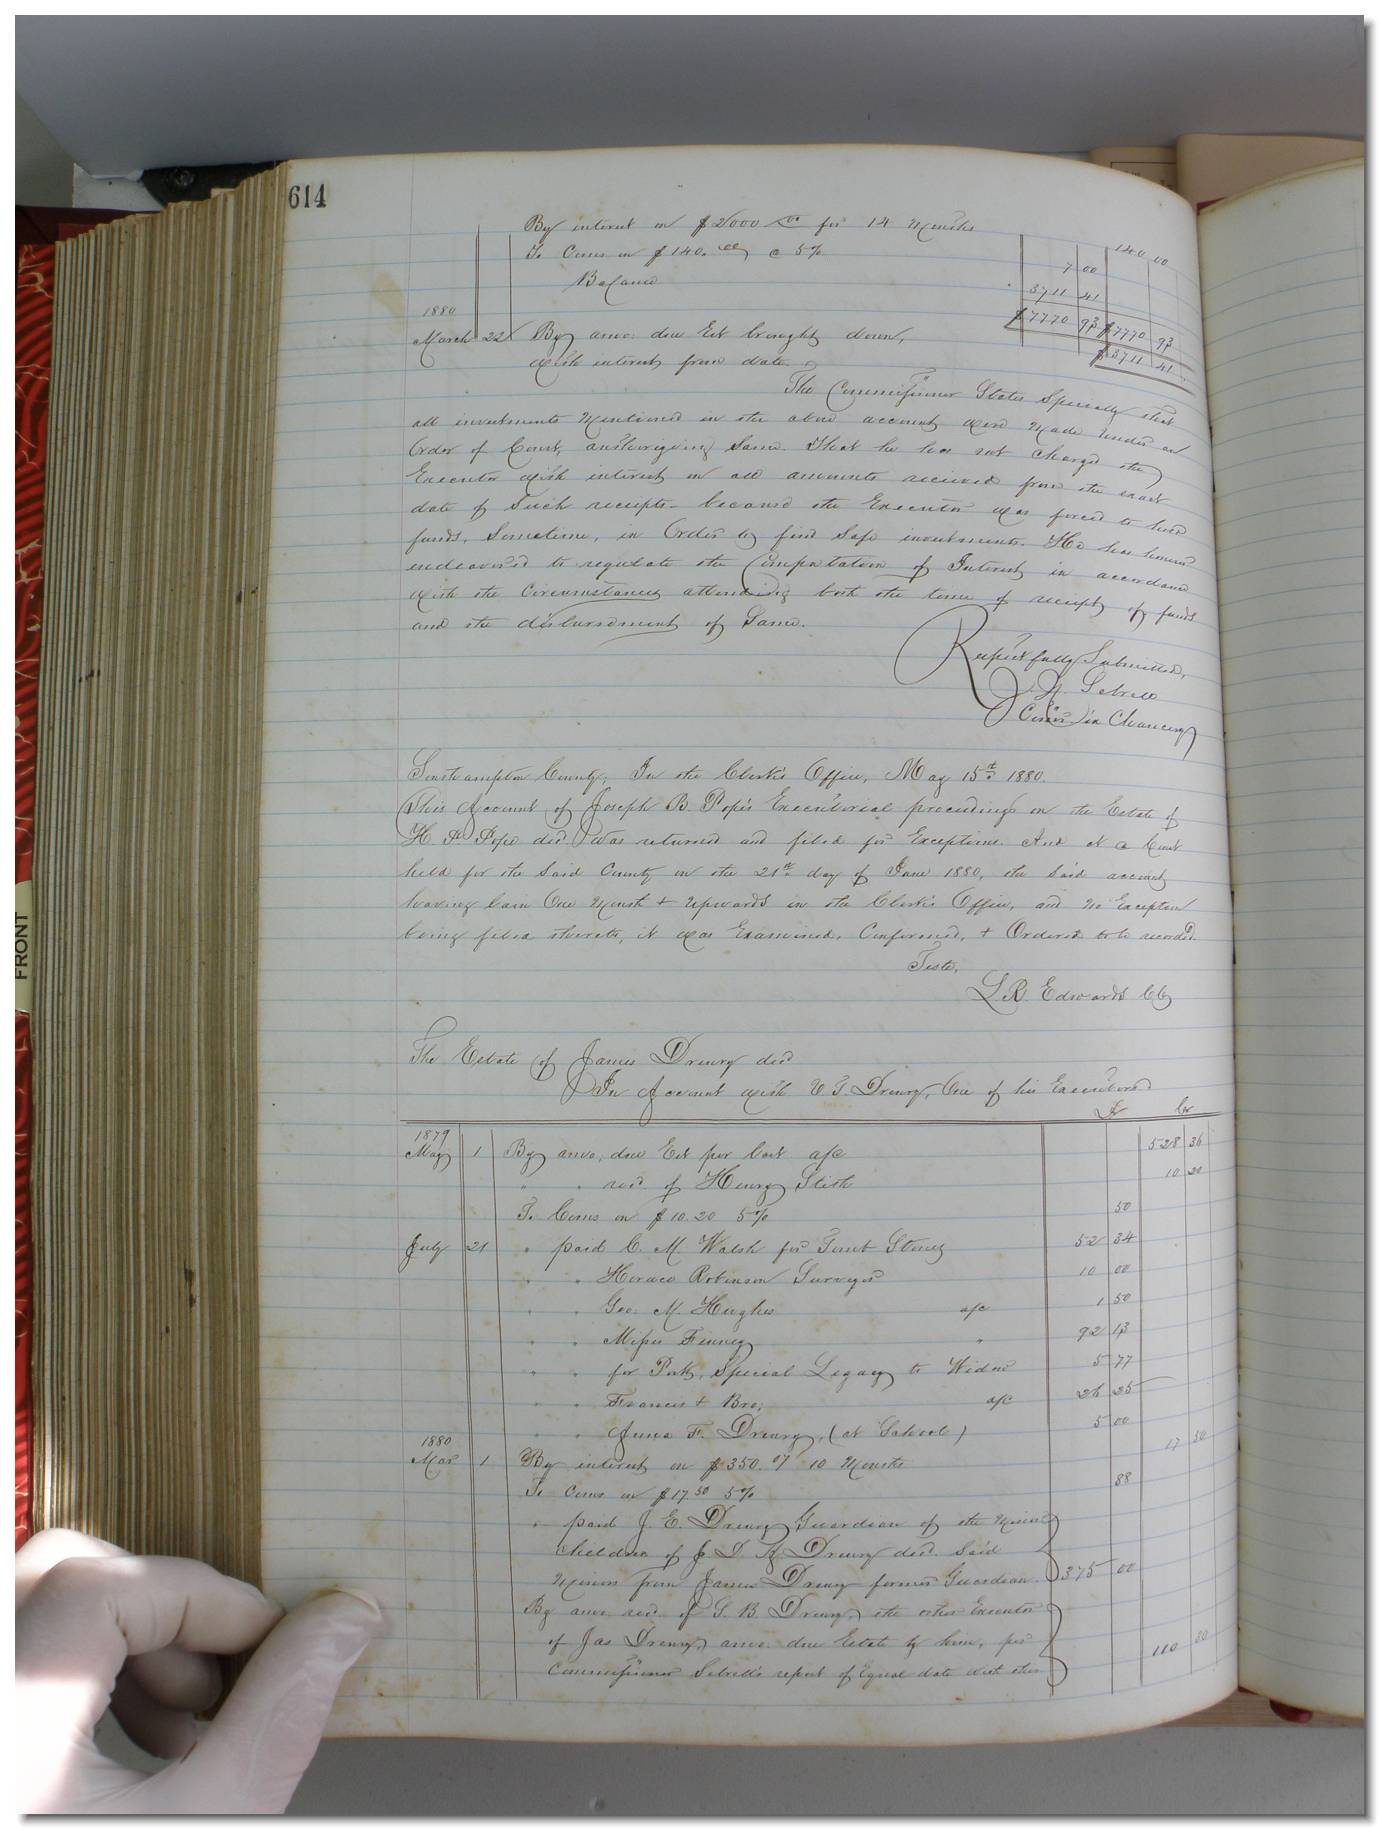 614
By interest on $2000.00 for 14 Months 140 00
To Coms on $140.00 @ 5% 7 00
Balance 3711 41
1880 $7770 93 $7770 93
March 22 By amo: due Est brought down, $3711 41
with interest from date
The Commissioner States Specially that
all investments Mentioned in the above account were Made under an
Order of Court, authorizing Same. That he has not charged the
Executor with interest on all amounts received from the exact
date of Such receipts because the Executor was forced to hold
funds, Sometime, in Order to find Safe investments. He has however
endeavored to regulate the Computation of Interest in accordance
with the Circumstances attending both the time of receipt of funds
and the disbursement of Same.
Respectfully Submitted,
J. H. Sebrell
Comr in Chancery
Southampton County; In the Clerk's Office, May 15th 1880.
This Account of Joseph B. Pope's Executorial proceedings on the Estate of
H Pope decd was returned and filed for Exceptions. And at a Court
held for the Said County on the 21st day of June 1880, the Said account
having lain One Month & upwards in the Clerk's Office, and no Exception
being filed thereto, it was Examined, Confirmed, & Ordered to be recorded.
Teste,
L R Edwards Clk
The Estate of James Drewry decd
In Account with Drewry, One of his Executors
Dr Cr
1879
May 1 By amo: due Est per last a/c 528 36
" " recd. of Henry Stith 10 20
To Coms on $10.20 5% 50
July 21 " paid C. M. Walsh for Tomb Stones 52 34
" " Horace Robinson Surveyor 10 00
" " Geo. M. Hughes a/c 1 50
" " Misses Finney " 92 13
" " for Pork, Special Legacy to Widow 5 77
" " Francis & Bro; a/c 26 25
" " Anna F. Drewry, (at School) 5 00
1880
Mar 1 By interest on $350. of 10 Months 17 50
To Coms on $17.50 5% 88
" paid J. E. Drewry Guardian of the Minor
Children of J. D. Drewry decd. Said
Minors from James Drewry former Guardian. 375 00
By amo: recd. of S. B. Drewry, the other Executor
of Jas Drewry, amo: due Estate by him, per
Commissioner Sebrell's report of Equal date with this 110